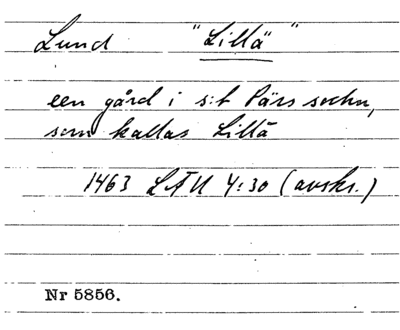 Lund "Lillä"
een gård i s:t Pärs sochn,
som kallas Lillä
1463 LÄU 4:30 (avskr.)
Nr 5856.